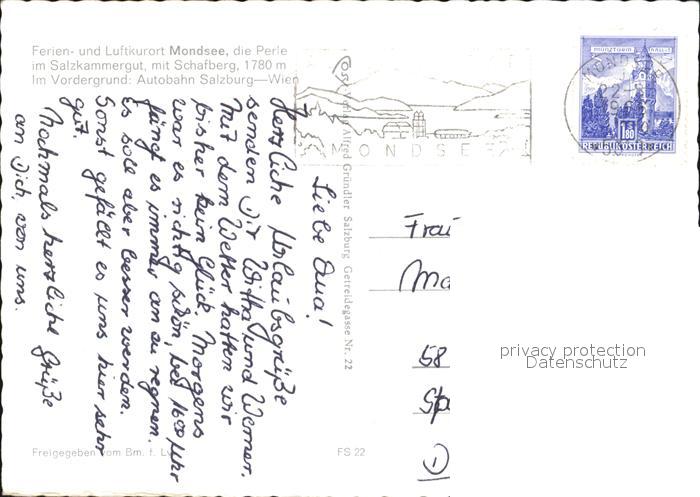 Ferien- und Luftkurort Mondsee, die Perle
im Salzkammergut, mit Schafberg, 1780 m
Im Vordergrund: Autobahn Salzburg—Wien
Liebe Oma!
Herzliche Urlaubsgrüße
senden Dir Witha und Werner.
Mit dem Wetter hatten wir
bisher kein Glück. Morgens
war es richtig schön, bei 1600 Uhr
fängt es immer an zu regnen.
Es soll aber besser werden.
Sonst gefällt es uns hier sehr
gut.
Nochmals herzliche Grüße
an Dich, von uns.
Verlag Alfred Gründler Salzburg Getreidegasse Nr. 22
MONDSEE
MÜNZTURM HALL
1.80
REPUBLIK ÖSTERREICH
Frau
Ma
58
Spa
privacy protection
Datenschutz
Freigegeben vom Bm. f. Lv.
FS 22